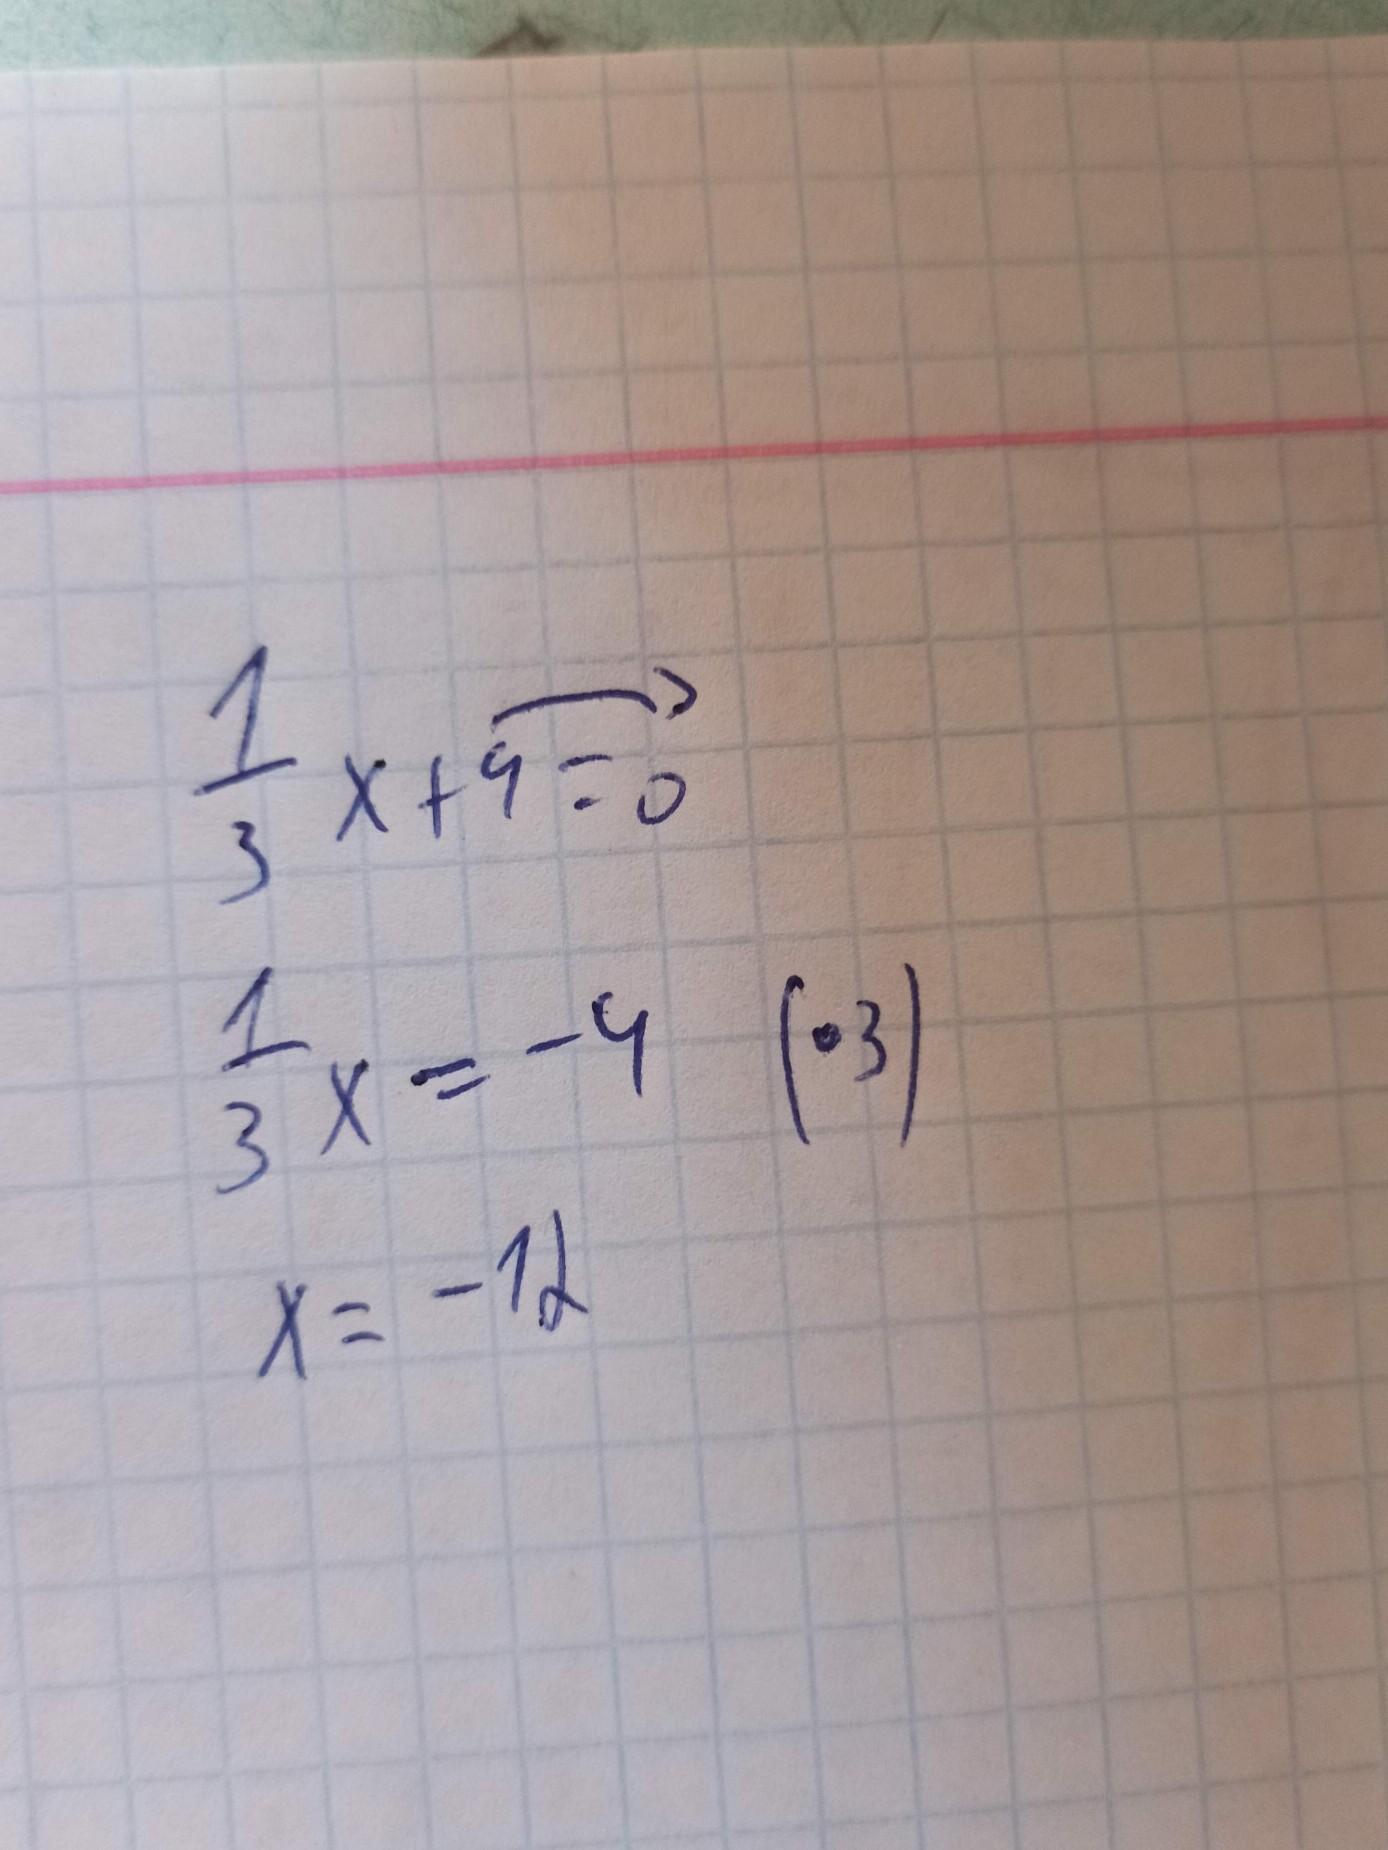 1/3 x + 4 = 0
1/3 x = -4 (·3)
x = -12